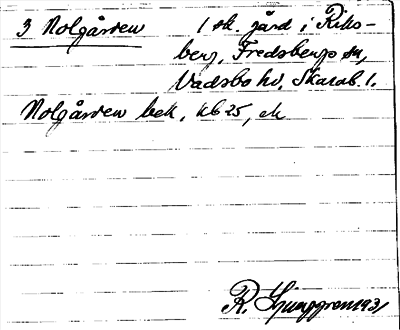 3 Nolgården 1 sk. gård i Riks-
berg, Fredsbergs sn,
Vadsbo hd, Skarab. l.
Nolgården bek, kb 25, ek
R. Ljunggren 1931